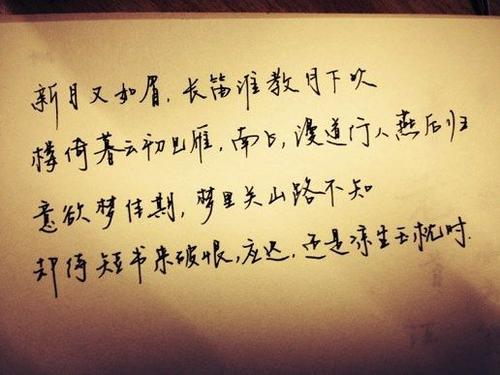 新月又如眉，长笛谁教月下吹
楼倚暮云初见雁，南飞，漫道行人雁后归
意欲梦佳期，梦里关山路不知
却待短书来破恨，应迟，还是凉生玉枕时．